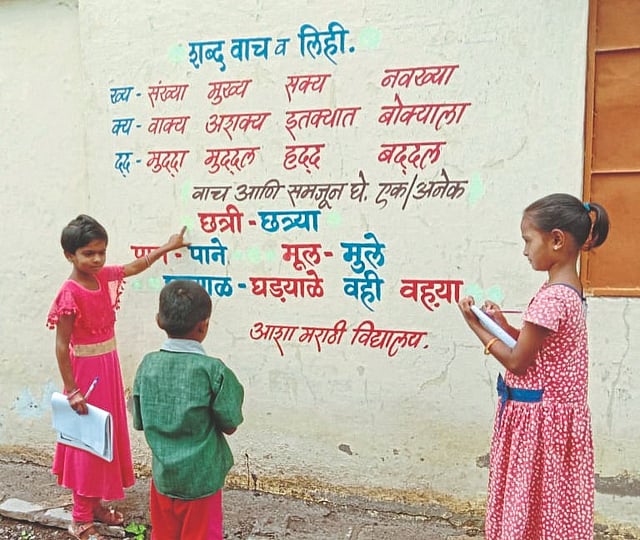 शब्द वाच व लिही.
ख्य - संख्या मुख्य सक्य नवख्या
क्य - वाक्य अशक्य इतक्यात बोक्याला
द्‌द - मुद्‌दा मुद्‌दल हद्‌द बद्‌दल
वाच आणि समजून घे. एक/अनेक
छत्री - छत्र्या
पान - पाने मूल - मुले
- घड्याळे वही वह्या
आशा मराठी विद्यालय.